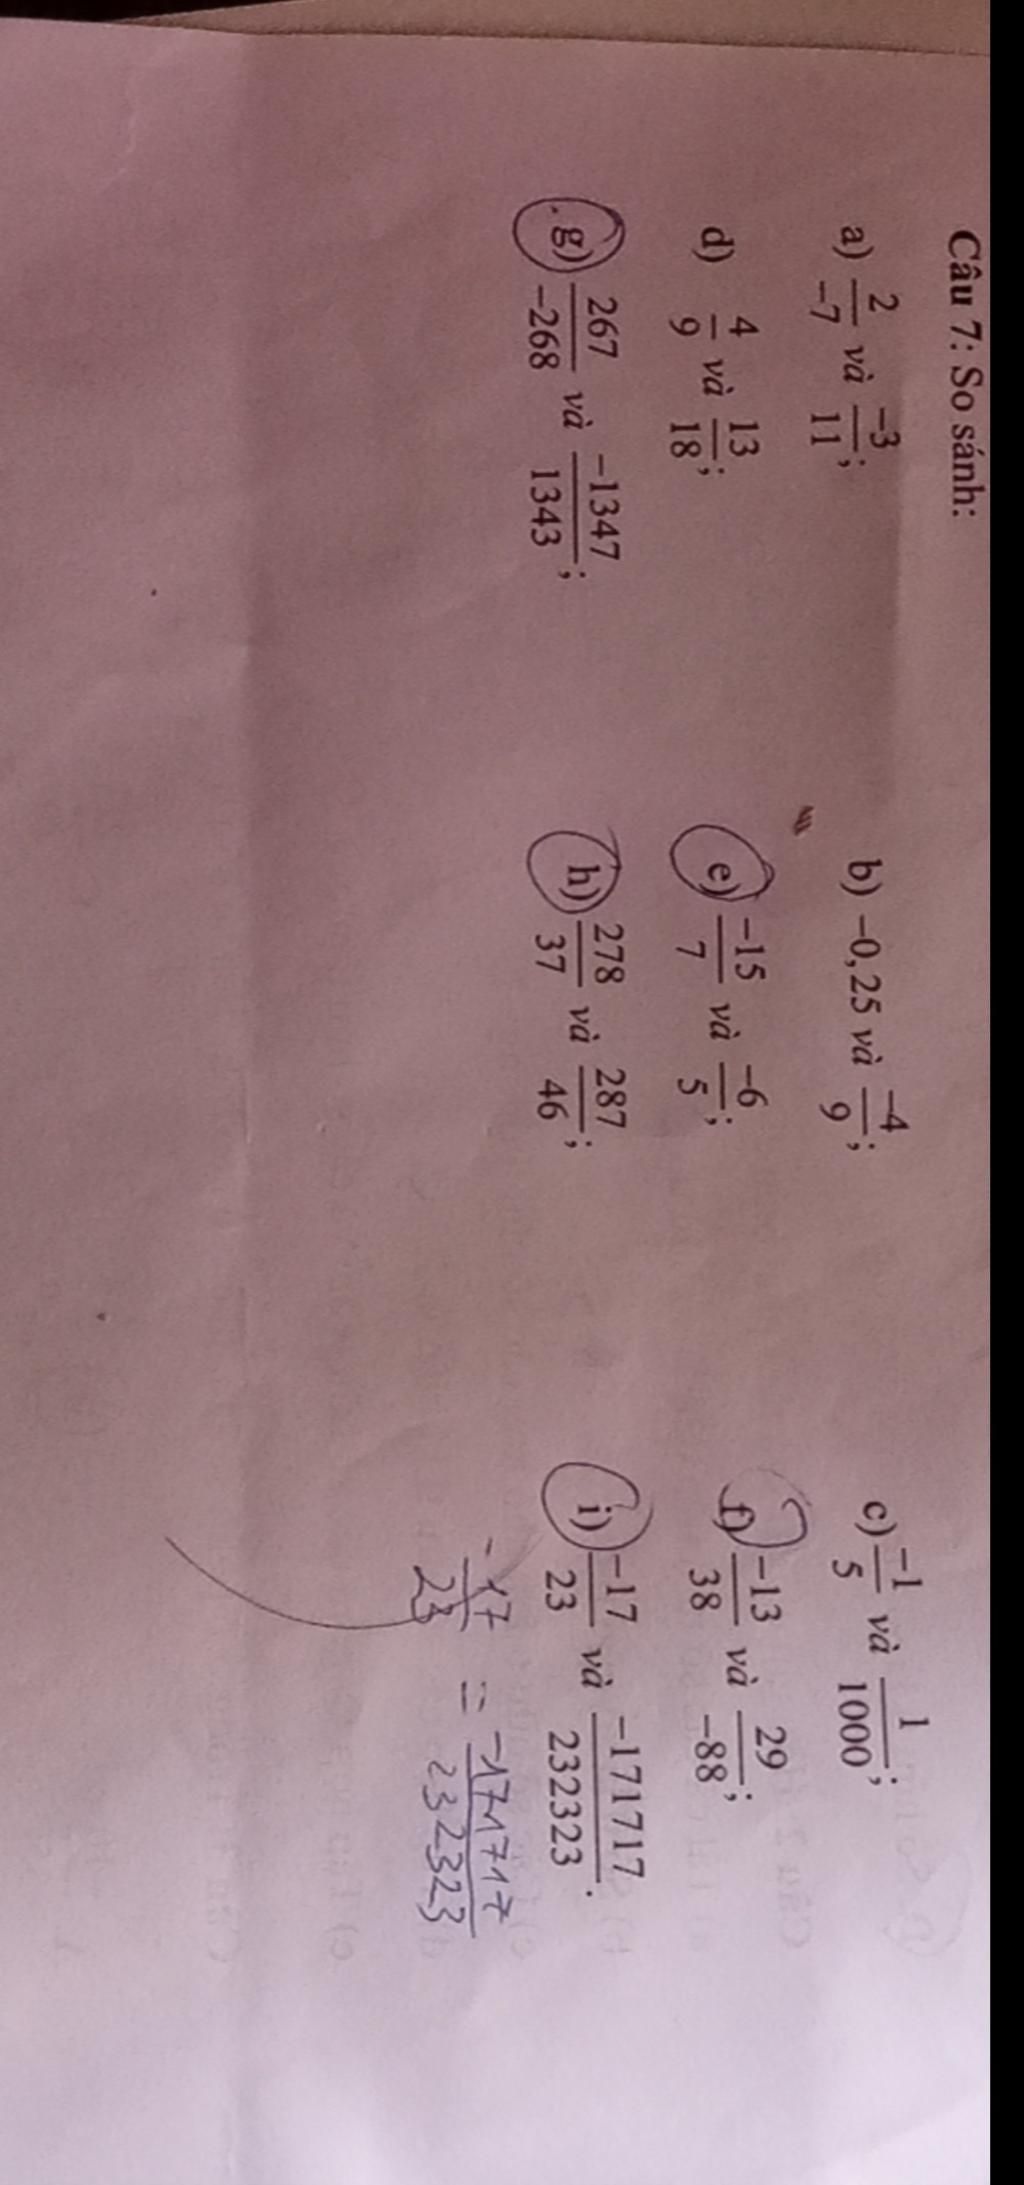 Câu 7: So sánh:
a) 2/-7 và -3/11; b) -0,25 và -4/9; c) -1/5 và 1/1000;
d) 4/9 và 13/18; e) -15/7 và -6/5; f) -13/38 và 29/-88;
g) 267/-268 và -1347/1343; h) 278/37 và 287/46; i) -17/23 và -171717/232323.
-17/23 = -171717/232323